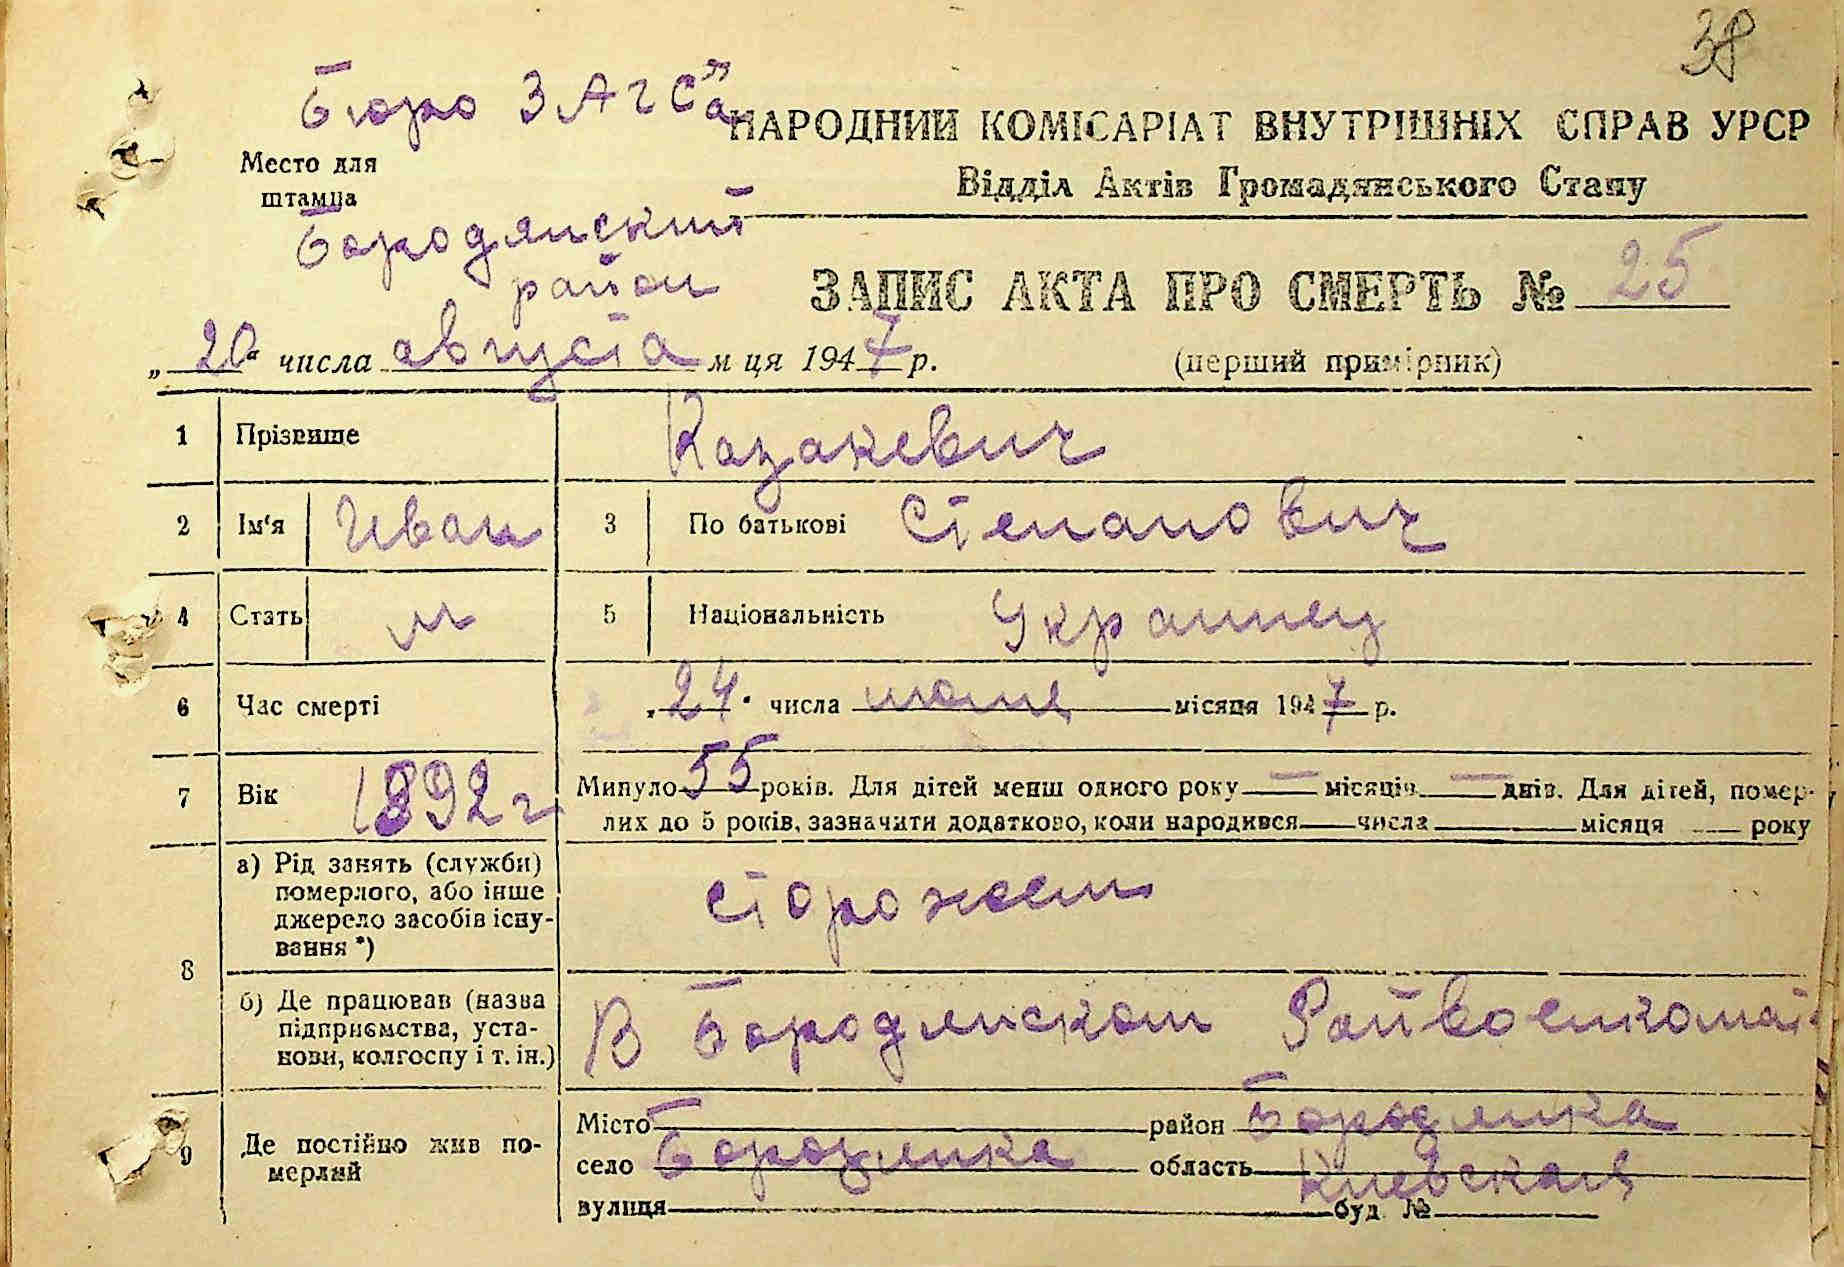 38
Бюро ЗАГСа
НАРОДНИЙ КОМІСАРІАТ ВНУТРІШНІХ СПРАВ УРСР
Место для
штампа
Відділ Актів Громадянського Стану
Бородянский
район
ЗАПИС АКТА ПРО СМЕРТЬ № 25
„20“ числа августа м ця 1947 р. (перший примірник)
1 Прізвище Казакевич
2 Ім'я Иван 3 По батькові Степанович
4 Стать м 5 Національність Украинец
6 Час смерті „24“ числа июня місяця 1947 р.
7 Вік 1892 г Минуло 55 років. Для дітей менш одного року — місяців — днів. Для дітей, помер-
лих до 5 років, зазначити додатково, коли народився — числа — місяця — року
8 а) Рід занять (служби)
померлого, або інше
джерело засобів існу-
вання *)
сторожем
б) Де працював (назва
підприємства, уста-
нови, колгоспу і т. ін.)
В Бородянском Райвоенкомат
9 Де постійно жив по-
мерлий
Місто район Бородянка
село Бородянка область Киевская
вулиця буд. №